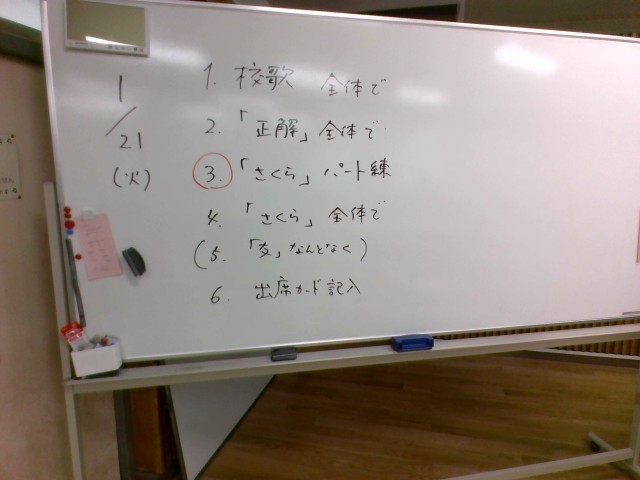 1/21
(火)
1. 校歌 全体で
2. 「正解」全体で
3. 「さくら」パート練
4. 「さくら」全体で
(5. 「友」なんとなく)
6. 出席カード記入